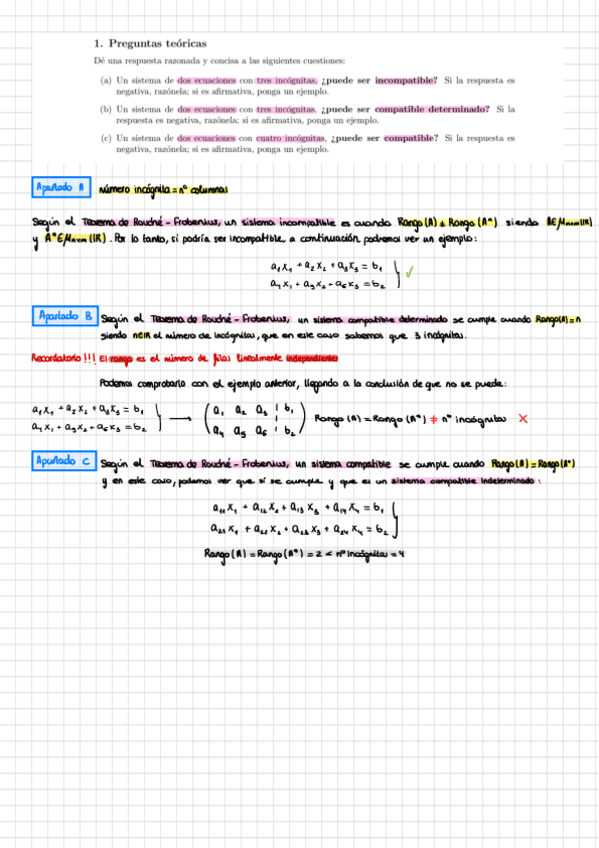 1. Preguntas teóricas
Dé una respuesta razonada y concisa a las siguientes cuestiones:
(a) Un sistema de dos ecuaciones con tres incógnitas, ¿puede ser incompatible? Si la respuesta es
negativa, razónela; si es afirmativa, ponga un ejemplo.
(b) Un sistema de dos ecuaciones con tres incógnitas, ¿puede ser compatible determinado? Si la
respuesta es negativa, razónela; si es afirmativa, ponga un ejemplo.
(c) Un sistema de dos ecuaciones con cuatro incógnitas, ¿puede ser compatible? Si la respuesta es
negativa, razónela; si es afirmativa, ponga un ejemplo.
Apartado A número incógnita = nº columnas
Según el Teorema de Rouché-Frobenius, un sistema incompatible es cuando Rango(A) ≠ Rango(A*) siendo A∈Mmxn(IR)
y A*∈Mmxn(IR). Por lo tanto, si podría ser incompatible, a continuación podremos ver un ejemplo:
a₁x₁ + a₂x₂ + a₃x₃ = b₁
a₄x₁ + a₅x₂ + a₆x₃ = b₂ ✓
Apartado B Según el Teorema de Rouché-Frobenius, un sistema compatible determinado se cumple cuando Rango(A)=n
siendo n∈IN el número de incógnitas, que en este caso sabemos que 3 incógnitas.
Recordatorio!!! El rango es el número de filas linealmente independientes
Podemos comprobarlo con el ejemplo anterior, llegando a la conclusión de que no se puede:
a₁x₁ + a₂x₂ + a₃x₃ = b₁
a₄x₁ + a₅x₂ + a₆x₃ = b₂
→
( a₁ a₂ a₃ | b₁
a₄ a₅ a₆ | b₂ )
Rango (A) = Rango (A*) ≠ nº incógnitas ✗
Apartado C Según el Teorema de Rouché-Frobenius, un sistema compatible se cumple cuando Rango(A)=Rango(A*)
y en este caso, podemos ver que si se cumple y que es un sistema compatible indeterminado:
a₁₁x₁ + a₁₂x₂ + a₁₃x₃ + a₁₄x₄ = b₁
a₂₁x₁ + a₂₂x₂ + a₂₃x₃ + a₂₄x₄ = b₂
Rango(A) = Rango(A*) = 2 < nº incógnitas = 4